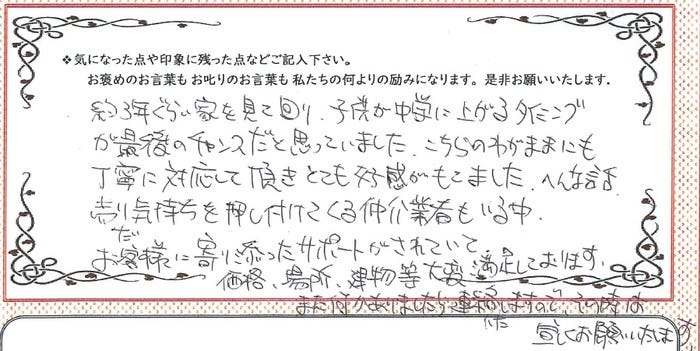 ❖気になった点や印象に残った点などご記入下さい。
お褒めのお言葉も お叱りのお言葉も 私たちの何よりの励みになります。是非お願いいたします.
約3年ぐらい家を見て回り、子供が中学に上がるタイミング
が最後のチャンスだと思っていました。こちらのわがままにも
丁寧に対応して頂きとても好感がもてました。へんな話
売り気持ちを押し付けてくる仲介業者もいる中、
だ
お客様に寄り添ったサポートがされていて
価格、場所、建物等大変満足しております。
また何かありましたら連絡しますので、その時は
宜しくお願いいたします